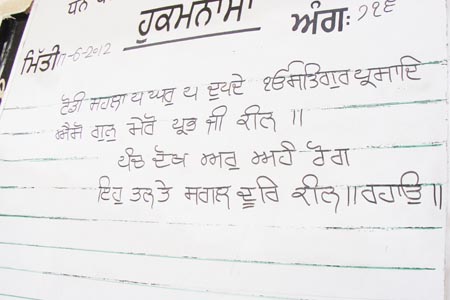 ਧਨ
ਹੁਕਮਨਾਮਾ
ਅੰਗ: ੭੧੬
ਮਿੱਤੀ 7-6-2012
ਟੋਡੀ ਮਹਲਾ ੫ ਘਰੁ ੫ ਦੁਪਦੇ ੴ ਸਤਿਗੁਰ ਪ੍ਰਸਾਦਿ
ਐਸੋ ਗੁਨੁ ਮੇਰੋ ਪ੍ਰਭ ਜੀ ਕੀਨ ॥
ਪੰਚ ਦੋਖ ਅਰੁ ਅਹੰ ਰੋਗ
ਇਹ ਤਨ ਤੇ ਸਗਲ ਦੂਰਿ ਕੀਨ ॥ ਰਹਾਉ ॥